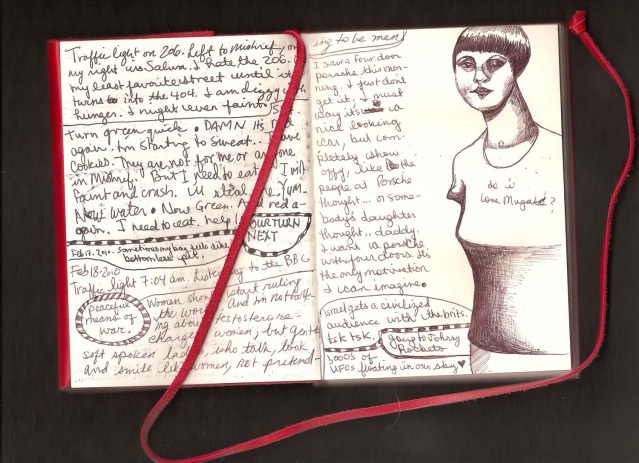 Traffic light on 206. Left to Mishref, on
my right is Salwa. I hate the 206. It's
my least favorite street until it
turns into the 404. I am dizzy with
hunger. I might even faint.
Turn green quick. DAMN its red
again. I'm starting to sweat. I have
cookies. They are not for me or anyone
in Mishref. But I need to eat or I will
faint and crash. I'll steal one. YUM.
Now water. Now Green. And red a-
gain. I need to eat. help!
YOUR TURN
NEXT
Feb.17.2010. Sometimes my bag feels like a
bottomless pit.
Feb 18 2010
Traffic light 7:04 am. Listening to the BBC
peaceful
means of
war.
Women should start ruling
the world. And I'm not talk-
ing about testosterone-
charged women, but gentle
soft spoken ladies, who talk, look
and smile like women, not pretend-
ing to be men.
I saw a four door
porsche this mor-
ning. I just don't
get it. I must
say its a
nice looking
car, but com-
pletely show
offy, like the
people at Porsche
thought... or some-
body's daughter
thought.. daddy.
I want a porsche
with four doors. Its
the only motivation
I can imagine.
do u
love Mugatu?
Israel gets a civilized
audience with the brits.
tsk tsk.
going to Johnny
Rockets
1000s of
UFOs floating in our sky ♥